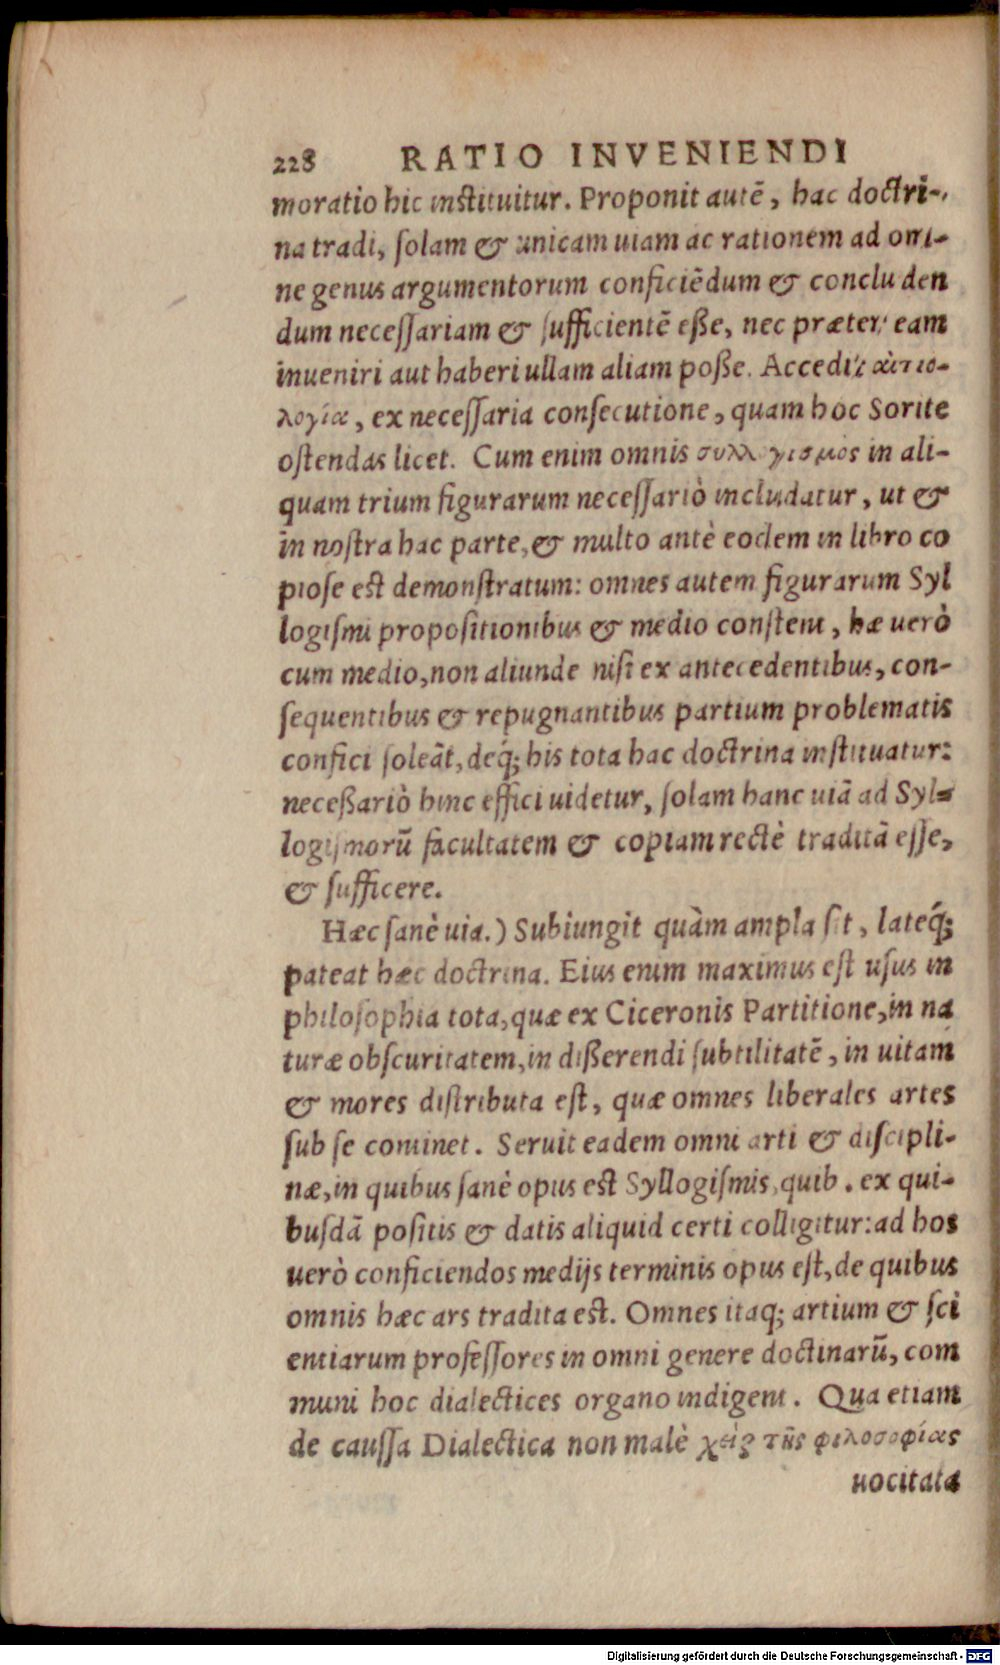 228 RATIO INVENIENDI
moratio hic instituitur. Proponit autē, hac doctri-
na tradi, solam & unicam uiam ac rationem ad om-
ne genus argumentorum conficiēdum & concluden
dum necessariam & sufficientē esse, nec præter eam
inueniri aut haberi ullam aliam posse. Accedit αἰτιο-
λογία, ex necessaria consecutione, quam hoc Sorite
ostendas licet. Cum enim omnis συλλογισμὸς in ali-
quam trium figurarum necessariò includatur, ut &
in nostra hac parte, & multo antè eodem in libro co
piose est demonstratum: omnes autem figurarum Syl
logismi propositionibus & medio constent, hæ uerò
cum medio, non aliunde nisi ex antecedentibus, con-
sequentibus & repugnantibus partium problematis
confici soleāt, deq́; his tota hac doctrina instituatur:
necessariò hinc effici uidetur, solam hanc uiā ad Syl-
logismorū facultatem & copiam rectè traditā esse,
& sufficere.
Hæc sanè uia.) Subiungit quàm ampla sit, lateq́;
pateat hæc doctrina. Eius enim maximus est usus in
philosophia tota, quæ ex Ciceronis Partitione, in na
turæ obscuritatem, in disserendi subtilitatē, in uitam
& mores distributa est, quæ omnes liberales artes
sub se continet. Seruit eadem omni arti & discipli-
næ, in quibus sanè opus est Syllogismis, quib. ex qui-
busdā positis & datis aliquid certi colligitur: ad hos
uerò conficiendos medijs terminis opus est, de quibus
omnis hæc ars tradita est. Omnes itaq; artium & sci
entiarum professores in omni genere doctinarū, com
muni hoc dialectices organo indigent. Qua etiam
de caussa Dialectica non malè χεὶρ τῆς φιλοσοφίας
uocitata
Digitalisierung gefördert durch die Deutsche Forschungsgemeinschaft - DFG